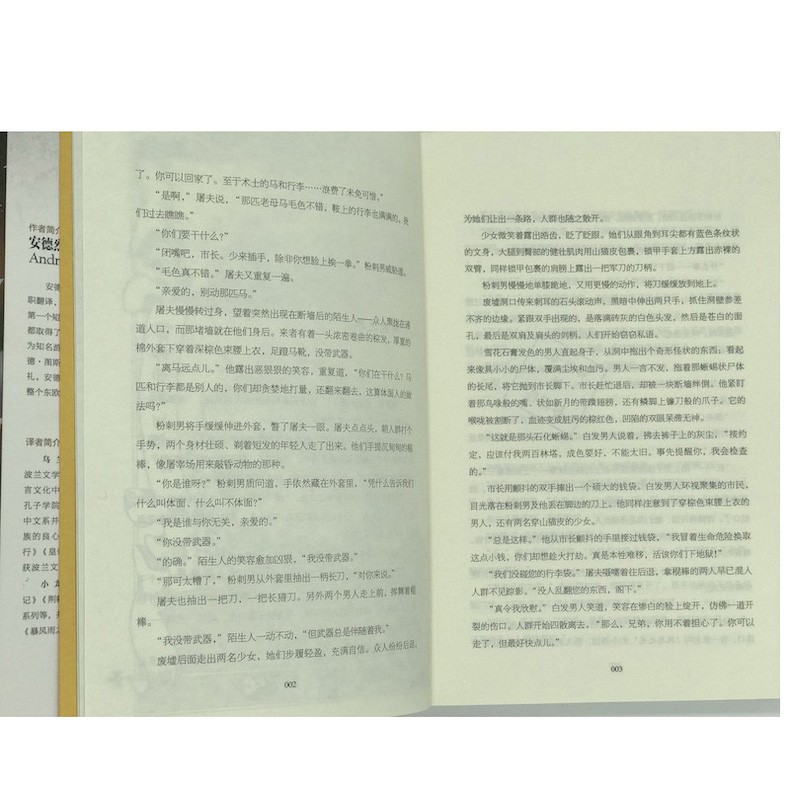 作者简介
安德烈
Andr
安德
职翻译，
第一个短
都取得了
为知名游
德·图斯
礼，安德
整个东欧
译者简介
乌兰
波兰文学
言文化中
孔子学院
中文系并
族的良心
行》《皇
获波兰文
小龙
记》《荆
系列等，
《暴风雨之
了。你可以回家了。至于术士的马和行李……浪费了未免可惜。”
“是啊，”屠夫说，“那匹老母马毛色不错，鞍上的行李也满满的。我
们过去瞧瞧。”
“你们要干什么？”
“闭嘴吧，市长。少来插手，除非你想脸上挨一拳。”粉刺男威胁道。
“毛色真不错。”屠夫又重复一遍。
“亲爱的，别动那匹马。”
屠夫慢慢转过身，望着突然出现在断墙后的陌生人——众人聚拢在通
道入口，而那堵墙就在他们身后。来者有着一头浓密卷曲的棕发，厚重的
棉外套下穿着深棕色束腰上衣，足蹬马靴，没带武器。
“离马远点儿。”他露出恶狠狠的笑容，重复道，“你们在干什么？马
匹和行李都是别人的，你们却贪婪地打量，还翻来翻去，这算体面人的做
法吗？”
粉刺男将手缓缓伸进外套，瞥了屠夫一眼。屠夫点点头，朝人群打个
手势，两个身材壮硕、剃着短发的年轻人走了出来。他们手提沉甸甸的棍
棒，像屠宰场用来敲昏动物的那种。
“你是谁呀？”粉刺男质问道，手依然藏在外套里，“凭什么告诉我们
什么叫体面、什么叫不体面？”
“我是谁与你无关，亲爱的。”
“你没带武器。”
“的确。”陌生人的笑容愈加凶狠，“我没带武器。”
“那可太糟了，”粉刺男从外套里抽出一柄长刀，“对你来说。”
屠夫也抽出一把刀，一把长猎刀。另外两个男人走上前，挥舞着棍
棒。
“我没带武器，”陌生人一动不动，“但武器总是伴随着我。”
废墟后面走出两名少女，她们步履轻盈，充满自信。众人纷纷后退，
002
为她们让出一条路，人群也随之散开。
少女微笑着露出皓齿，眨了眨眼。她们从眼角到耳尖都有蓝色条纹状
的文身，大腿到臀部的健壮肌肉用山猫皮包裹，锁甲手套上方露出赤裸的
双臂，同样锁甲包裹的肩膀上露出一把军刀的刀柄。
粉刺男慢慢地单膝跪地，又用更慢的动作，将刀缓缓放到地上。
废墟洞口传来刺耳的石头滚动声，黑暗中伸出两只手，抓住洞壁参差
不齐的边缘。紧跟双手出现的，是落满砖灰的白色头发，然后是苍白的面
孔，最后是双肩及肩头的剑柄。人们开始窃窃私语。
雪花石膏发色的男人直起身子，从洞中拖出个奇形怪状的东西：看起
来像具小小的尸体，覆满尘埃和血污。男人一言不发，拖着那蜥蜴状尸体
的长尾，将它抛到市长脚下。市长赶忙退后，却被一块断墙绊倒。他紧盯
着那鸟喙般的嘴、状如新月的带蹼翅膀，还有鳞脚上镰刀般的爪子。它的
喉咙被割断了，血迹变成脏污的棕红色，凹陷的双眼呆滞无神。
“这就是那头石化蜥蜴。”白发男人说着，拂去裤子上的灰尘，“按约
定，应该付我两百林塔，成色要好，不能太旧。事先提醒你，我会检查
的。”
市长用颤抖的双手捧出一个硕大的钱袋。白发男人环视聚集的市民，
目光落在粉刺男及他丢在脚边的刀上。他同样注意到了穿棕色束腰上衣的
男人，还有两名穿山猫皮的少女。
“总是这样。”他从市长颤抖的手里接过钱袋，“我冒着生命危险换取
这点小钱，你们却想趁火打劫。真是本性难移，活该你们下地狱！”
“我们没碰您的行李袋。”屠夫嗫嚅着往后退，拿棍棒的两人早已混入
人群不见踪影。“没人乱翻您的东西，阁下。”
“真令我欣慰。”白发男人笑道，笑容在惨白的脸上绽开，仿佛一道开
裂的伤口。人群开始四散离去，“那么，兄弟，你用不着担心了。你可以
走了，但最好快点儿。”
003